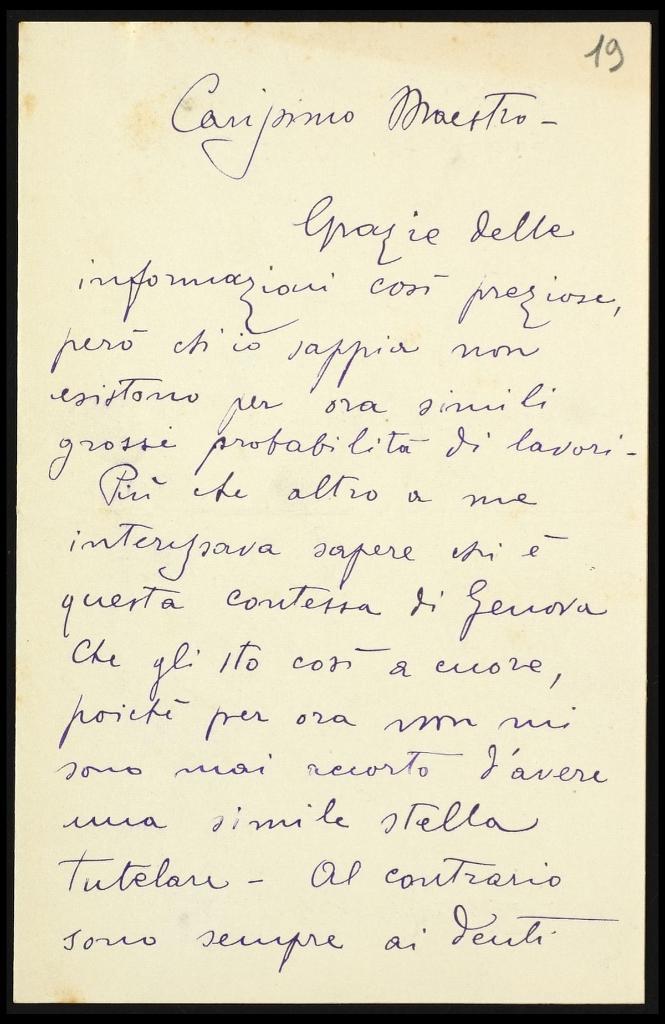 19
Carissimo Maestro -
Grazie delle
informazioni così preziose,
però ch'io sappia non
esistono per ora simili
grosse probabilità di lavori -
Più che altro a me
interessava sapere chi è
questa contessa di Genova
che gli sto così a cuore,
poichè per ora non mi
sono mai accorto d'avere
una simile stella
tutelare - Al contrario
sono sempre ai denti